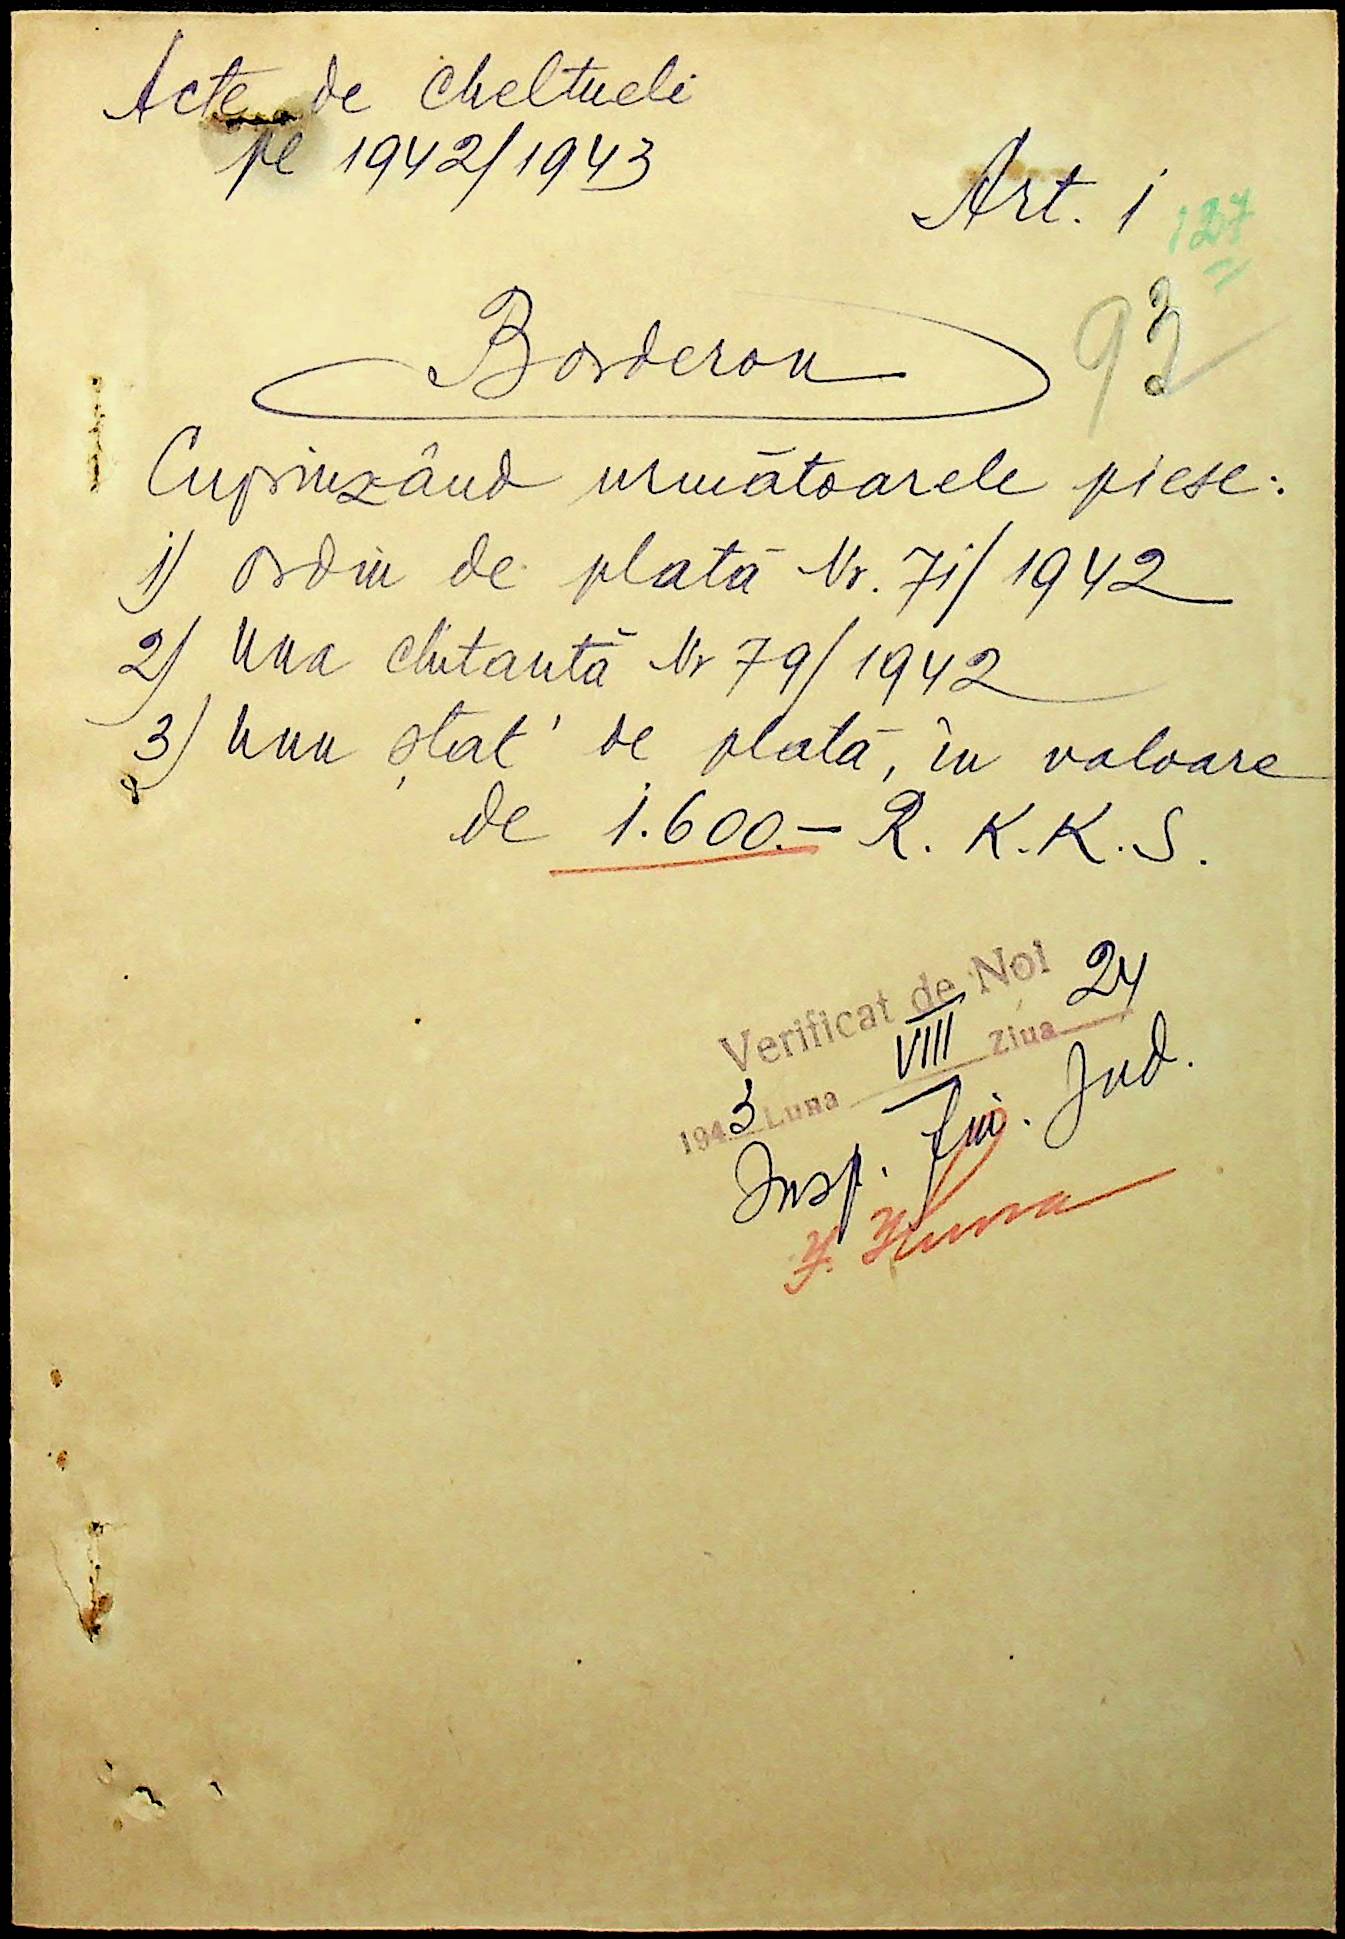 Acte de cheltueli
pe 1942/1943
Art. 1
127
93
Borderou
Cuprinzând următoarele piese:
1) ordin de plată Nr. 71/1942
2) Una chitantă Nr 79/1942
3) Unu ștat de plată, în valoare
de 1.600.— R. K. K. S.
Verificat de Noi
1943 Luna VIII Ziua 24
Insp. fin. Jud.